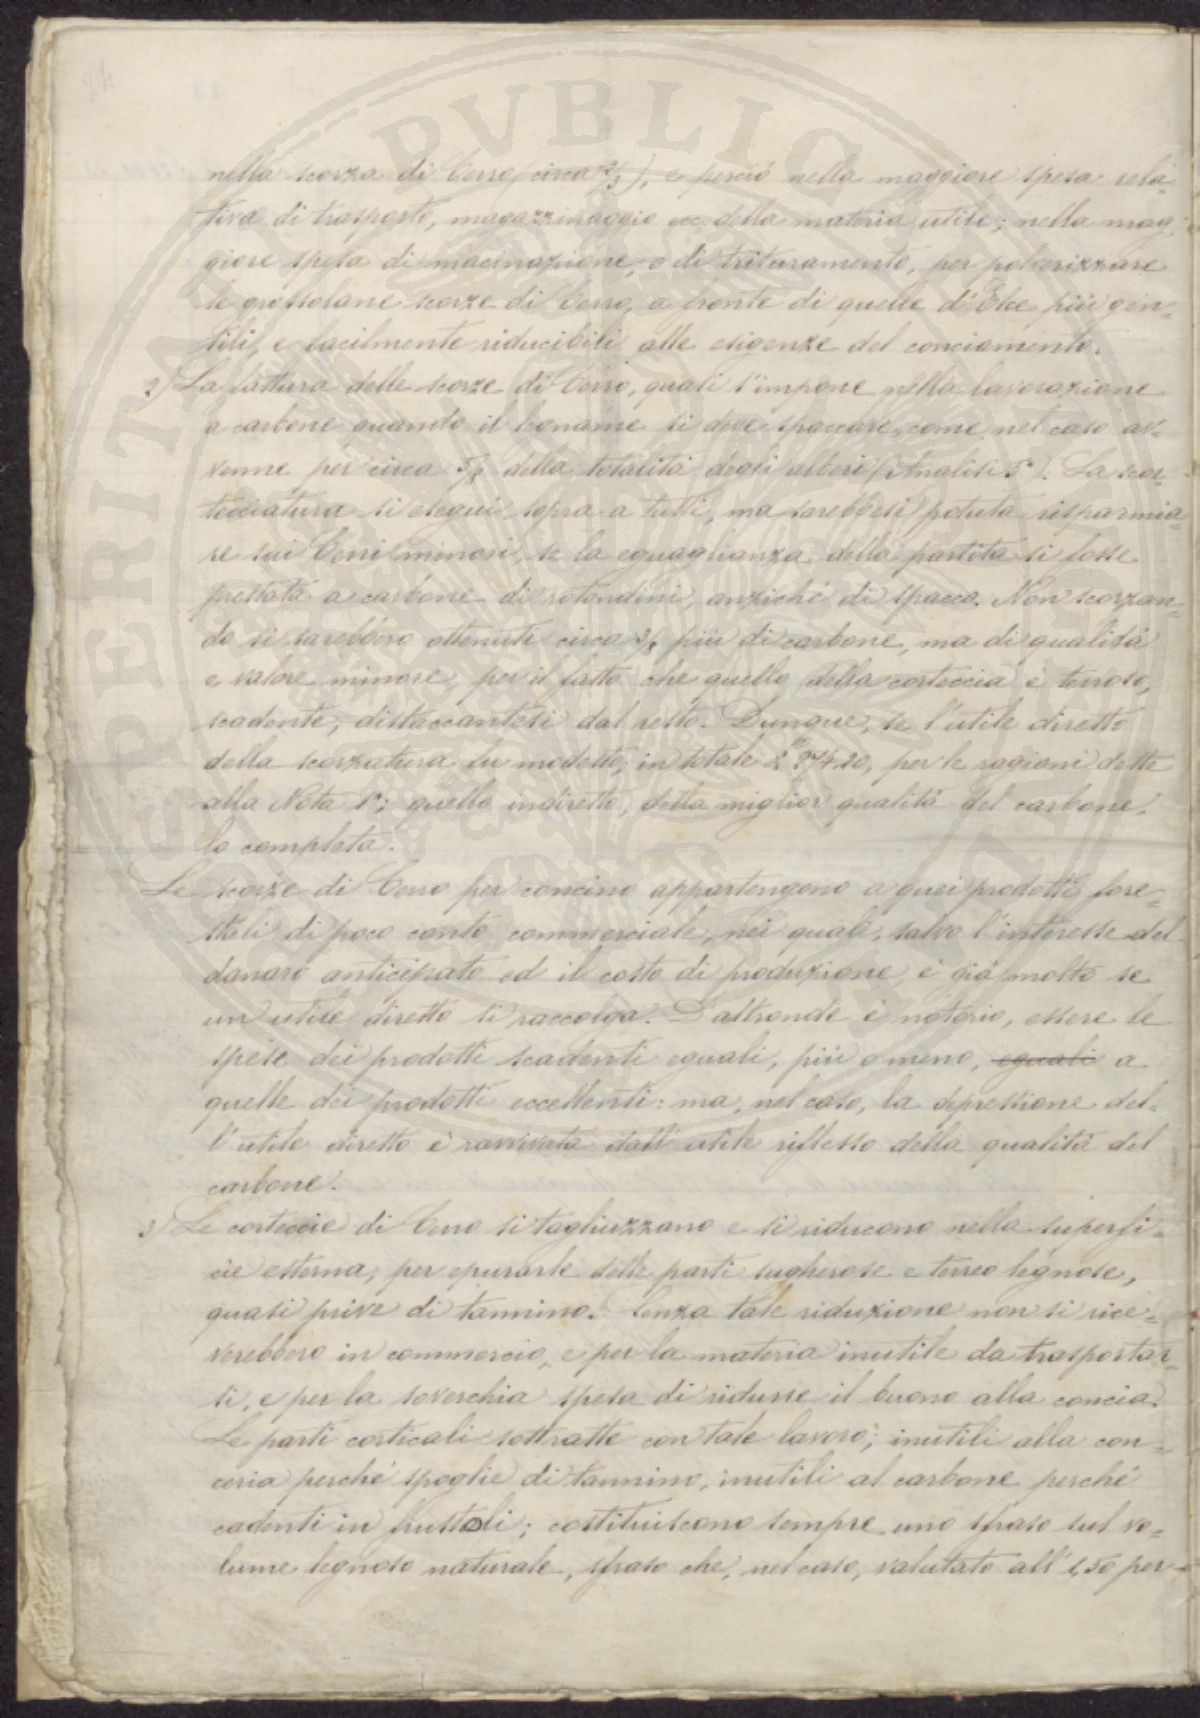 24
nella scorza di Cerro (circa 2/3), e perció nella maggiore spesa rela=
tiva di trasporto, magazzinaggio ecc. della materia utile; nella mag
giore spesa di macinazione, o di trituramento, per polverizzare
le grossolane scorze di Cerro, a fronte di quelle d'Elce piü gen=
tili, e facilmente riducibili alle esigenze del conciamento.
2) La fattura delle scorze di Cerro, quali s'impone nella lavorazione
a carbone quando il legname si deve spaccare, come nel caso av=
venne per circa 5/8 della totalitá degli alberi (Analisi 5a). La scor=
tecciatura si eseguí sopra a tutti, ma sarebbesi potuta risparmia=
re sui Cerri minori, se la eguaglianza della partita si fosse
prestata a carbone di rotondini, anziché di spacco. Non scorzan=
do si sarebbero ottenuti circa 2/8 piü di carbone, ma di qualitá
e valore minore, per il fatto che quello della corteccia é terroso,
scadente, distaccantesi dal resto. Dunque, se l'utile diretto
della scorzatura fu modesto, in totale 974.20, per le ragioni dette
alla Nota 1a; quello indiretto, della miglior qualitá del carbone,
lo completa.
Le scorze di Cerro per concino appartengono a quei prodotti fore=
stali di poco conto commerciale, nei quali, salvo l'interesse del
danaro anticipato ed il costo di produzione, é giá molto se
un utile diretto si raccolga. D'altronde é notorio, essere le
spese dei prodotti scadenti eguali, piü o meno, eguali a
quelle dei prodotti eccellenti: ma, nel caso, la depressione del=
l'utile diretto é ravvivata dall'utile riflesso della qualitá del
carbone.
3) Le corteccie di Cerro si tagliuzzano e si riducono nella superfi=
cie esterna, per epurarle delle parti sugherose e terreo legnose,
quasi prive di tannino. Senza tale riduzione non si rice=
verebbero in commercio, e per la materia inutile da trasportar=
si, e per la soverchia spesa di ridurre il buono alla concia.
Le parti corticali sottratte con tale lavoro; inutili alla con=
ceria perché spoglie di tannino, inutili al carbone perché
cadenti in frustoli; costituiscono sempre uno sfraso sul vo=
lume legnoso naturale, sfraso che, nel caso, valutato all'1,50 per
PERITAT PVBLIC